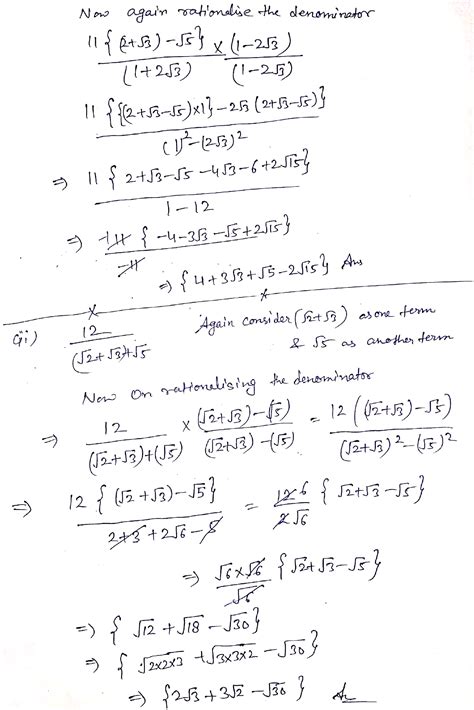 Now again rationalise the denominator
11{(2+√3)-√5} / (1+2√3) × (1-2√3) / (1-2√3)
11{{(2+√3-√5)×1}-2√3(2+√3-√5)} / (1)²-(2√3)²
⇒ 11{2+√3-√5-4√3-6+2√15} / 1-12
⇒ 11{-4-3√3-√5+2√15} / -11
⇒ {4+3√3+√5-2√15} Ans
ii) 12 / (√2+√3)+√5 Again consider (√2+√3) as one term
& √5 as another term
Now On rationalising the denominator
⇒ 12 / (√2+√3)+(√5) × (√2+√3)-(√5) / (√2+√3)-(√5) = 12((√2+√3)-√5) / (√2+√3)²-(√5)²
⇒ 12{(√2+√3)-√5} / 2+3+2√6-5 = 12 6 / 2√6 {√2+√3-√5}
⇒ √6×√6 / √6 {√2+√3-√5}
⇒ {√12+√18-√30}
⇒ {√2×2×3+√3×3×2-√30}
⇒ {2√3+3√2-√30} Ans